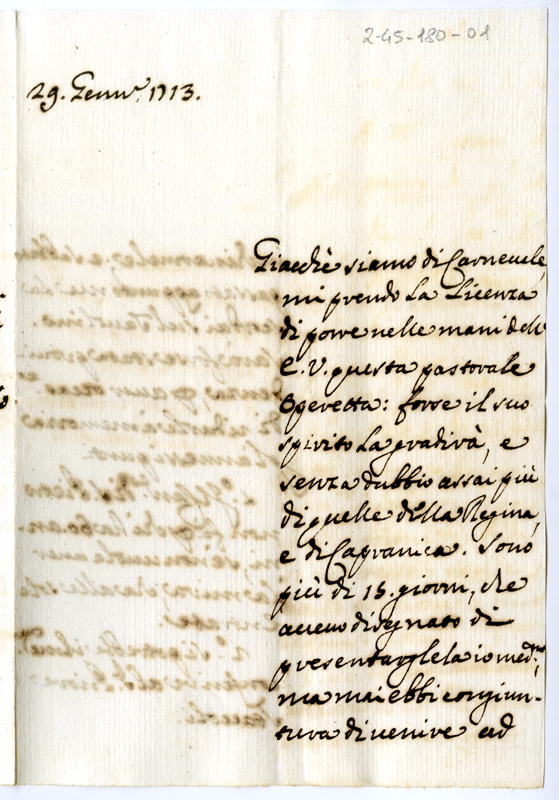 2-45-180-01
29. Genn.º 1713.
Giacchè siamo di Carnevale,
mi prendo la licenza
di porre nelle mani dell'
E. V. questa pastorale
operetta: forse il suo
spirito la gradirà, e
senza dubbio assai più
di quelle della Regina,
e di Capranica. Sono
più di 15. giorni, che
avevo disegnato di
presentargliela io med.mo,
ma mai ebbi congiun-
tura di venire ad